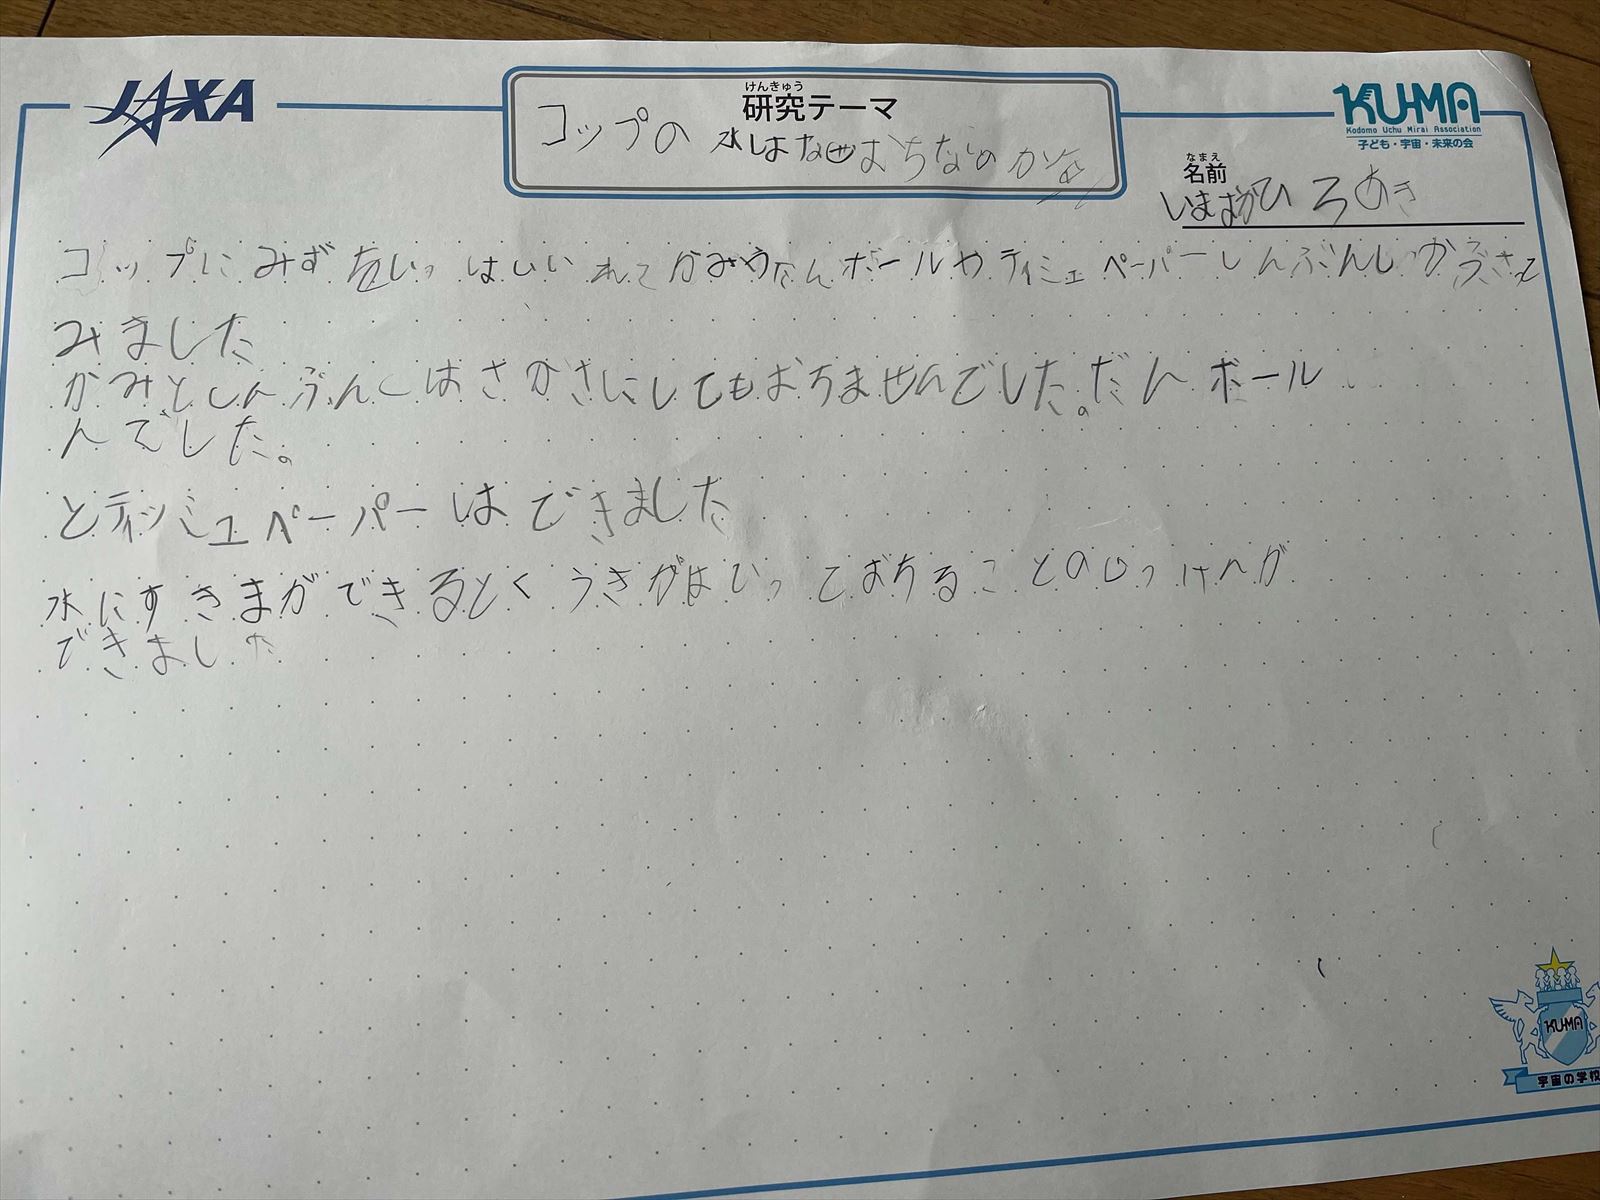 JAXA
けんきゅう
研究テーマ
コップの水はなぜおちないのかな
KU-MA
Kodomo Uchu Mirai Association
子ども・宇宙・未来の会
なまえ
名前
ひろあき
コップにみずをいっぱいいれてかみやだんボールやティシュペーパーしんぶんしかぶさて
みました
かみとしんぶんしはさかさにしてもおちませんでした。だんボール
んでした。
とティッシュペーパーはできました
水にすきまができるとくうきがはいっておちることのじっけんが
できました
KU-MA
宇宙の学校